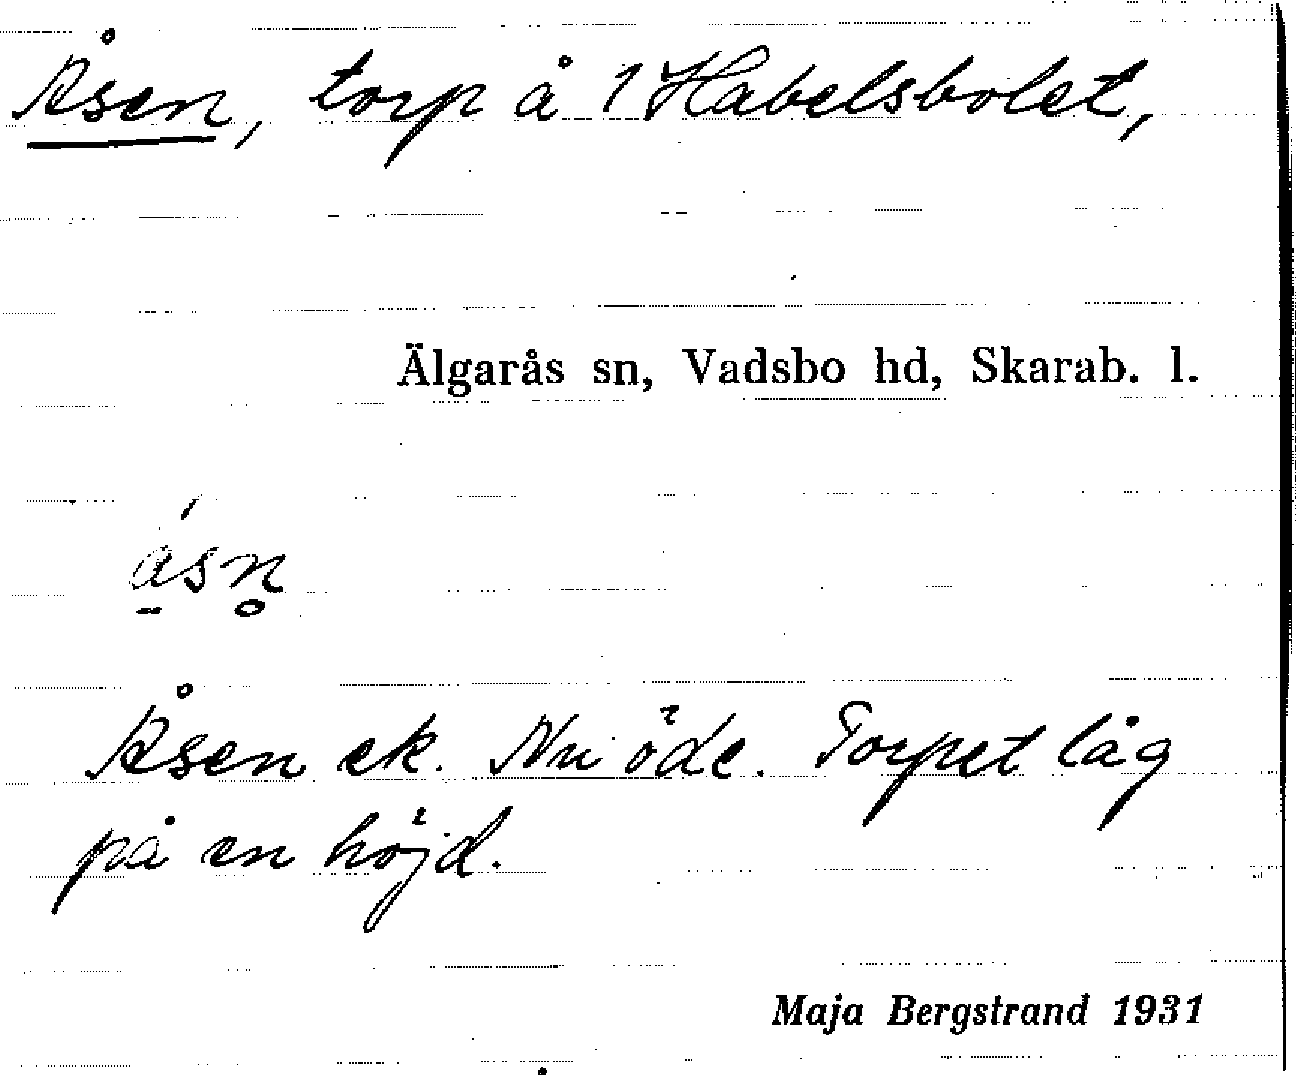 Åsen, torp å 1 Habelsbolet,
Älgarås sn, Vadsbo hd, Skarab. l.
ás̱n̥
Åsen ek. Nu öde. Torpet låg
på en höjd.
Maja Bergstrand 1931